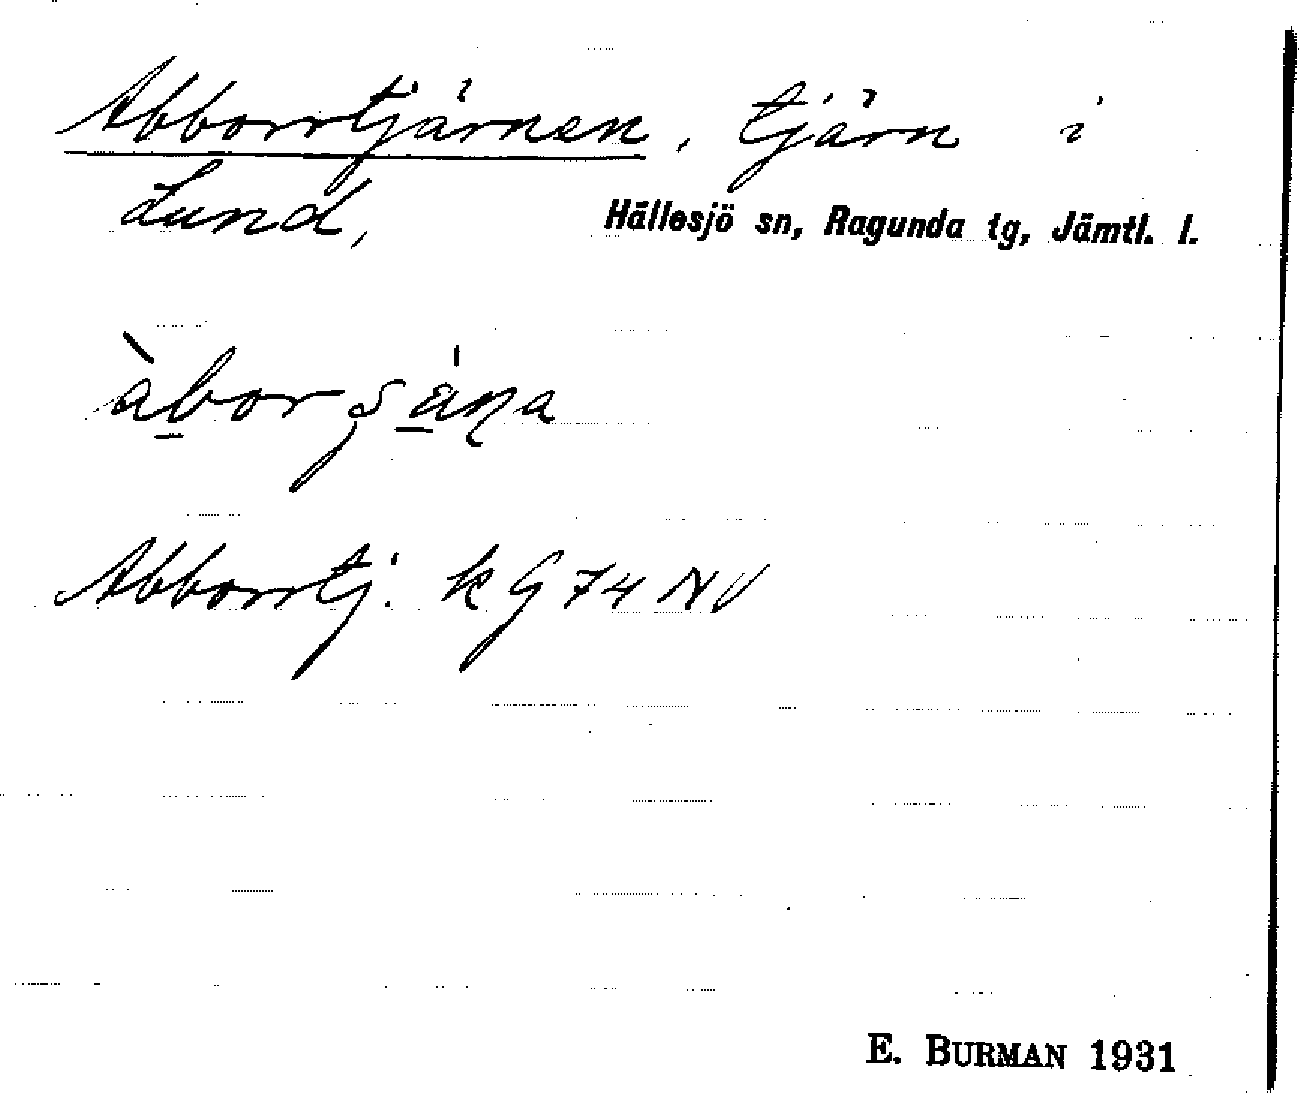 Abborrtjärnen, tjärn i
Lund, Hällesjö sn, Ragunda tg, Jämtl. l.
Abborrtj. k G 74 NV
E. BURMAN 1931